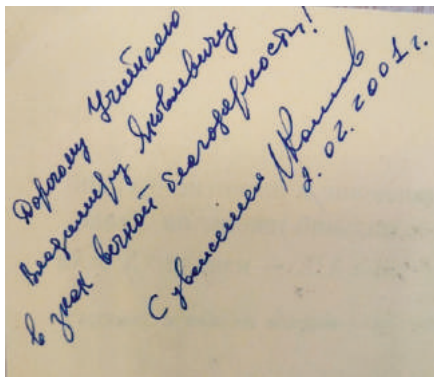 Дорогому Учителю
Владимиру Яковлевичу
в знак вечной благодарности!
С уважением
2.02.2001 г.